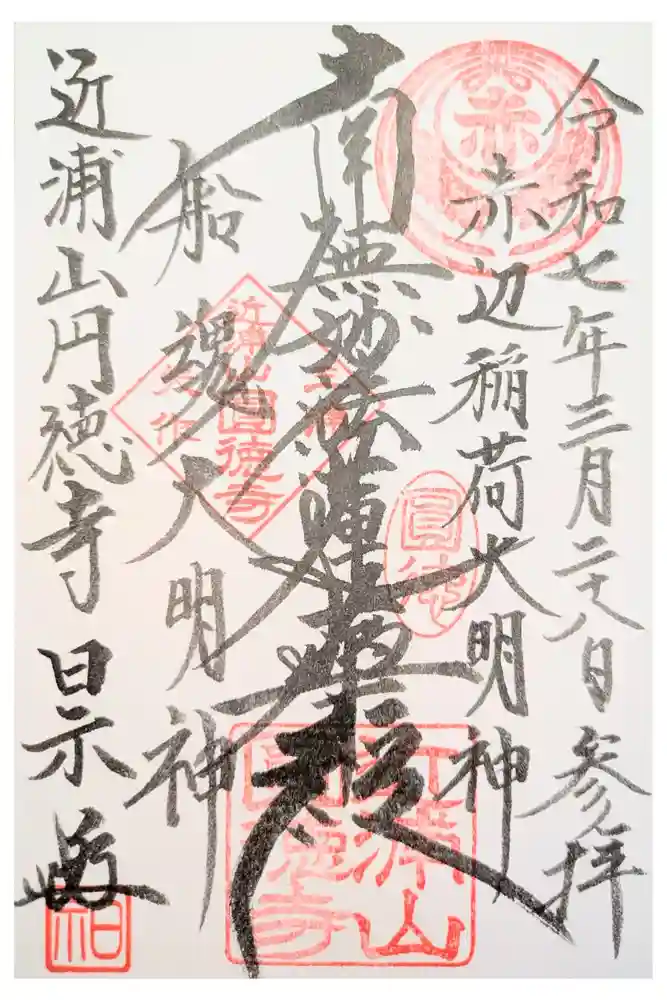 令和七年三月二十八日参拝
赤辺稲荷大明神
南無妙法蓮華経
船魂大明神
近浦山円徳寺 日示
赤
圓徳
近浦山
圓徳寺